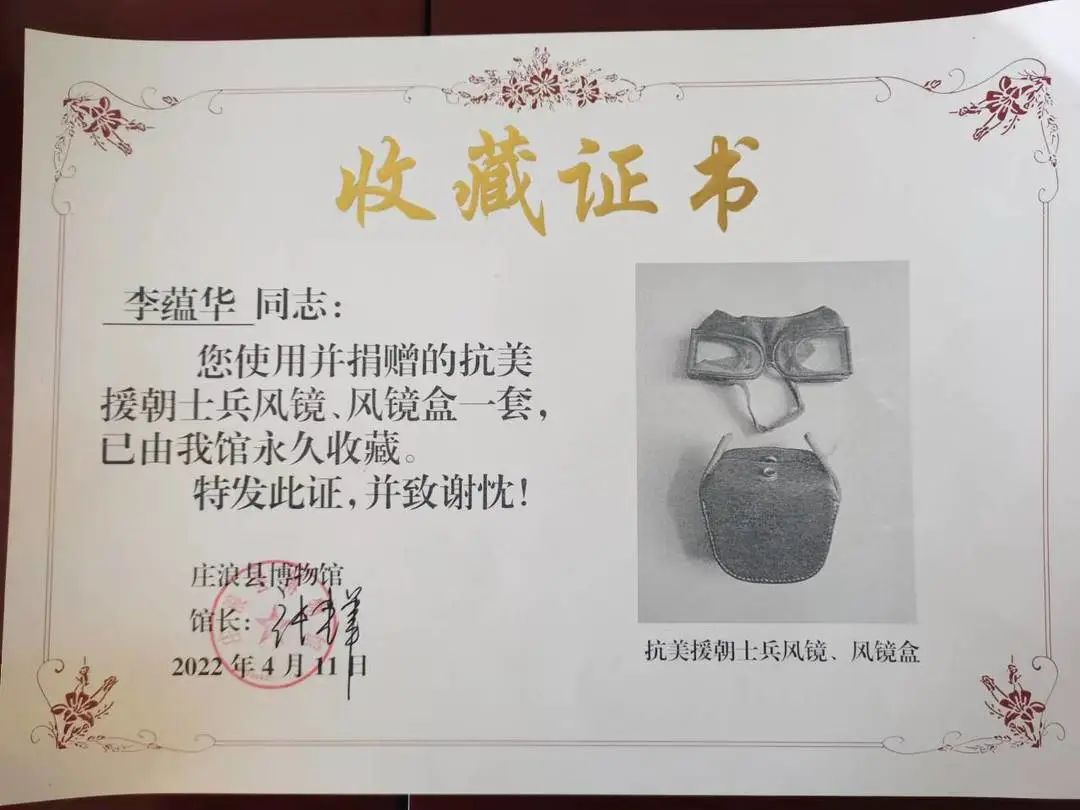 收藏证书
李蕴华 同志：
您使用并捐赠的抗美
援朝士兵风镜、风镜盒一套，
已由我馆永久收藏。
特发此证，并致谢忱！
庄浪县博物馆
馆长：
2022年4月11日
抗美援朝士兵风镜、风镜盒